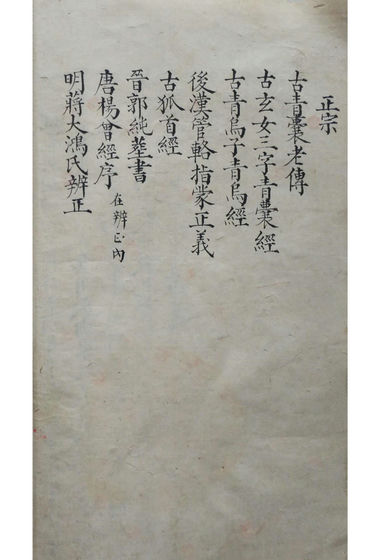 正宗
古青囊老傳
古玄女三字青囊經
古青烏子青烏經
後漢管輅指蒙正義
古狐首經
晉郭純塟書
唐楊曾經序 在辨正內
明蔣大鴻氏辨正